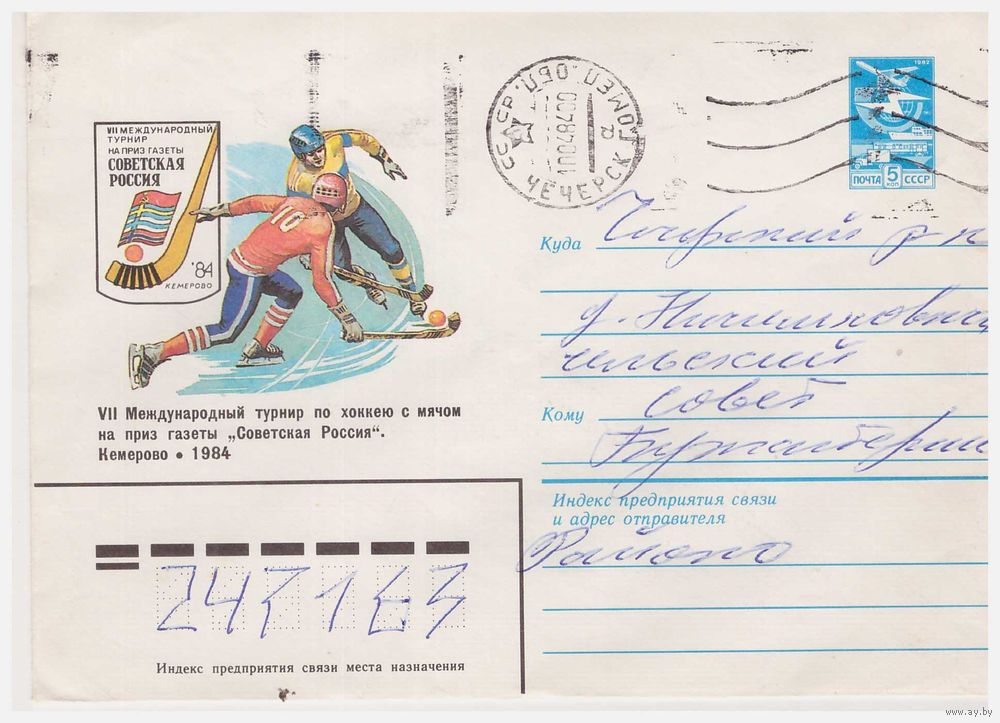 VII МЕЖДУНАРОДНЫЙ
ТУРНИР
НА ПРИЗ ГАЗЕТЫ
СОВЕТСКАЯ
РОССИЯ
'84
КЕМЕРОВО
10
VII Международный турнир по хоккею с мячом
на приз газеты „Советская Россия“.
Кемерово • 1984
СССР
ЧЕЧЕРСК ГОМЕЛ. ОБЛ.
а
1982
ПОЧТА 5 КОП СССР
Куда
р-н
д.
сельский
Кому совет
Индекс предприятия связи
и адрес отправителя
Районо
247163
Индекс предприятия связи места назначения
www.ay.by